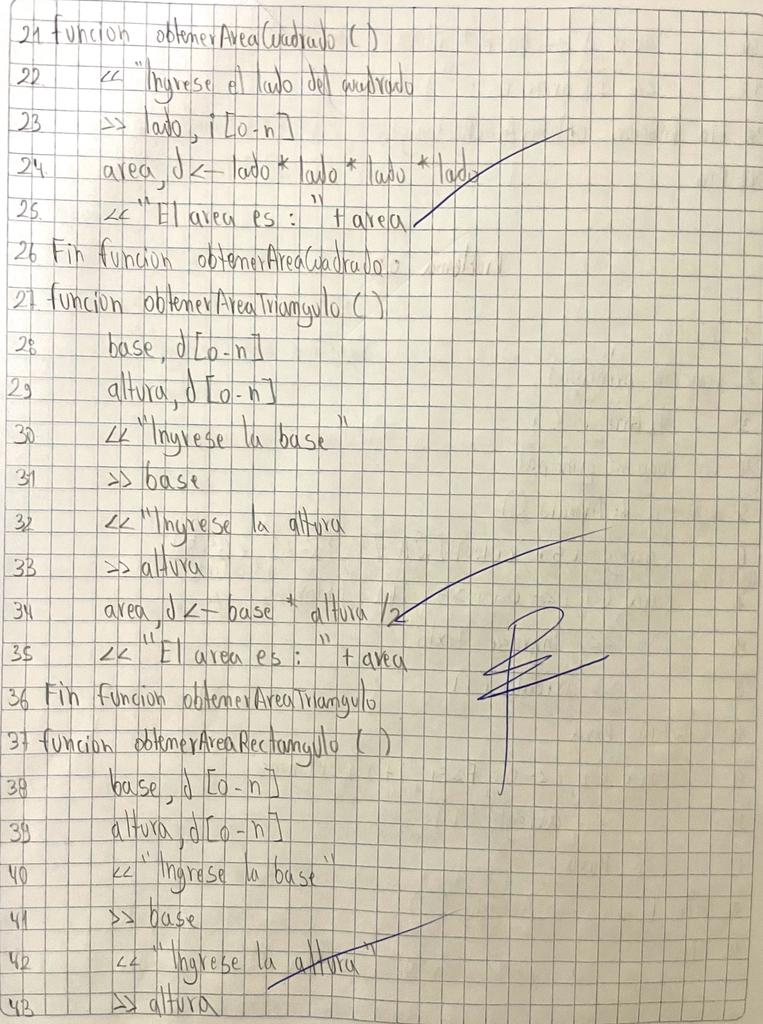 21 funcion obtenerAreaCuadrado ()
22 << "Ingrese el lado del cuadrado
23 >> lado, i [0-n]
24 area, d <- lado * lado * lado * lado
25 << "El area es: " + area
26 Fin funcion obtenerAreaCuadrado
27 funcion obtenerAreaTriangulo ()
28 base, d [0-n]
29 altura, d [0-n]
30 << "Ingrese la base"
31 >> base
32 << "Ingrese la altura
33 >> altura
34 area, d <- base * altura /2
35 << "El area es: " + area
36 Fin funcion obtenerAreaTriangulo
37 funcion obtenerAreaRectangulo ()
38 base, d [0-n]
39 altura, d [0-n]
40 << "Ingrese la base"
41 >> base
42 << "Ingrese la altura"
43 >> altura